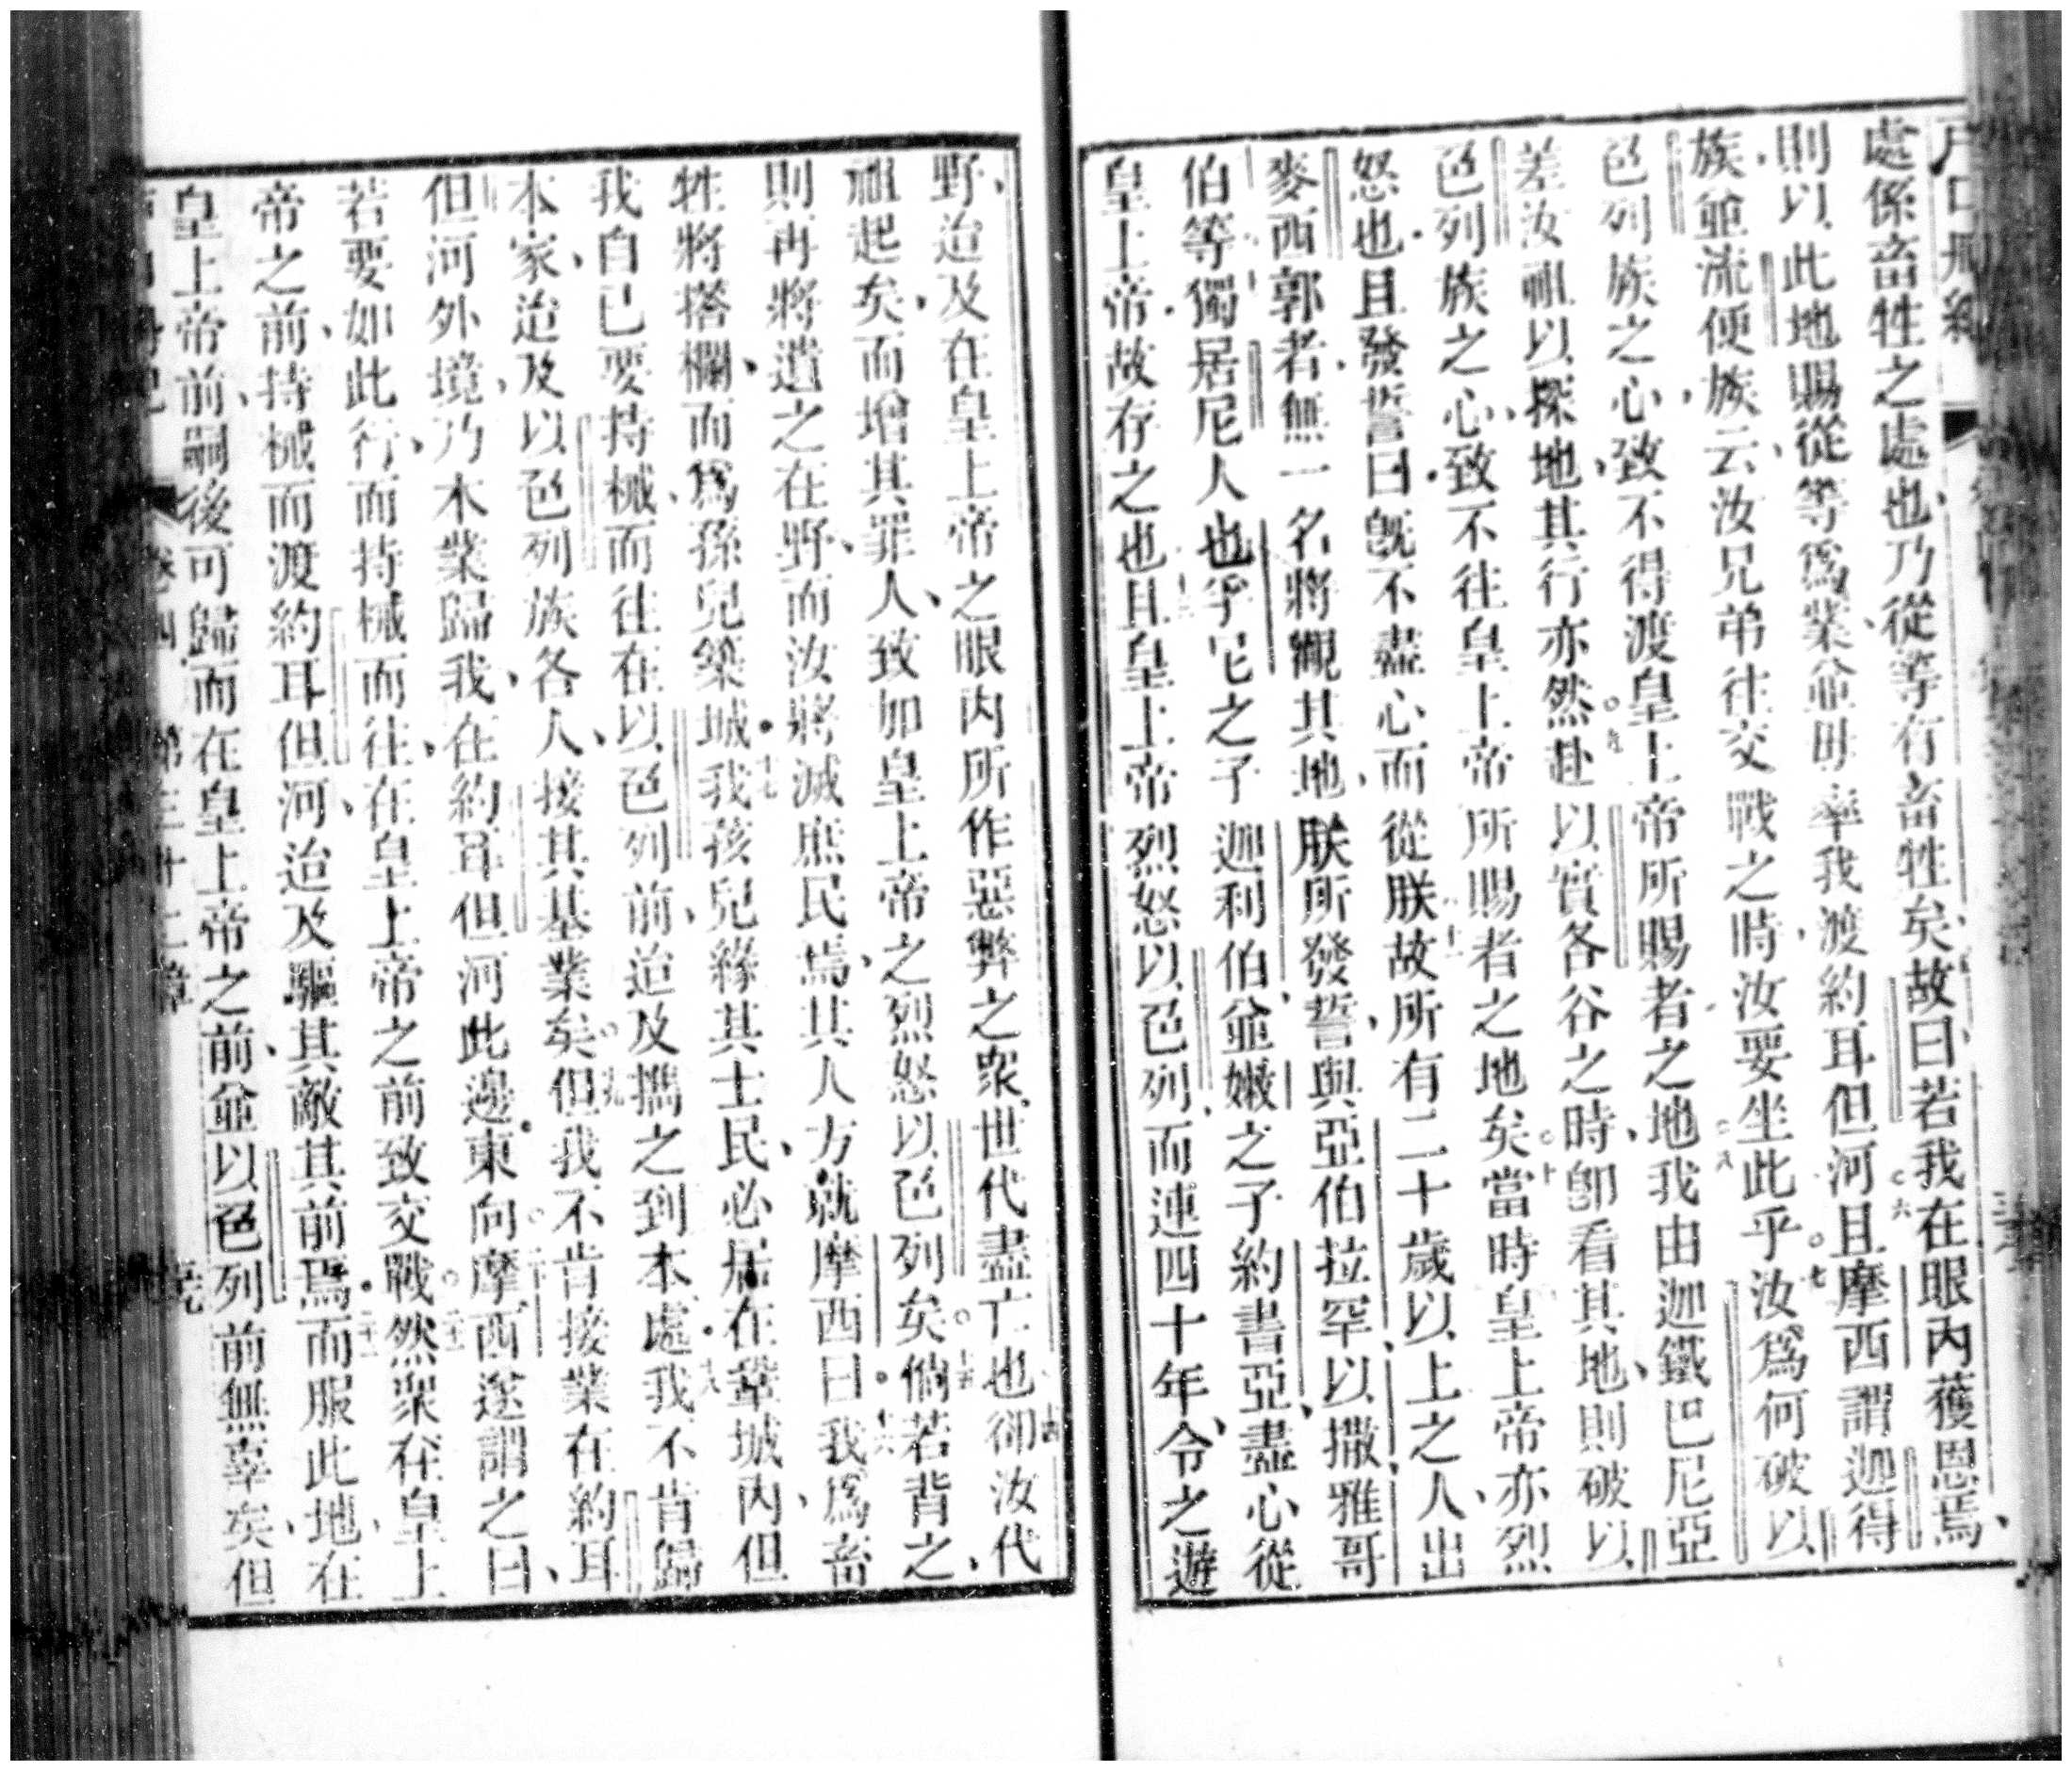 處係畜牲之處也、乃從等有畜牲矣、故曰、若我在眼內獲恩焉、
則以此地賜從等爲業、並毋率我渡約耳但河、且摩西謂迦得
族並流便族云、汝兄弟往交戰之時、汝要坐此乎、汝爲何破以
色列族之心、致不得渡皇上帝所賜者之地、我由迦鐵巴尼亞
差汝祖以探地、其行亦然、赴以實各谷之時、卽看其地、則破以
色列族之心、致不往皇上帝所賜者之地矣、當時皇上帝亦烈
怒也、且發誓曰、旣不盡心而從朕、故所有二十歲以上之人、出
麥西郭者、無一名將觀其地、朕所發誓、與亞伯拉罕、以撒、雅哥
伯等、獨居尼人也孚尼之子迦利伯、並嫩之子約書亞、盡心從
皇上帝、故存之也、且皇上帝烈怒以色列、而連四十年、令之遊
野、迨及在皇上帝之眼內所作惡弊之衆、世代盡亡也、卻汝代
祖起矣、而增其罪人、致如皇上帝之烈怒以色列矣、倘若背之、
則再將遺之在野、而汝將滅庶民焉、其人方就摩西曰、我爲畜
牲將搭欄、而爲孫兒築城、我孩兒緣其士民、必居在鞏城內、但
我自己要持械、而往在以色列前、迨及攜之到本處、我不肯歸
本家、迨及以色列族各人、接其基業矣、但我不肯接業在約耳
但河外境、乃本業歸我、在約耳但河此邊東向、摩西遂謂之曰、
若要如此行、而持械而往、在皇上帝之前致交戰、然衆在皇上
帝之前、持械而渡約耳但河、迨及驅其敵其前焉、而服此地、在
皇上帝前、嗣後可歸而在皇上帝之前、並以色列前無辜矣、但
卷四 第三十二章